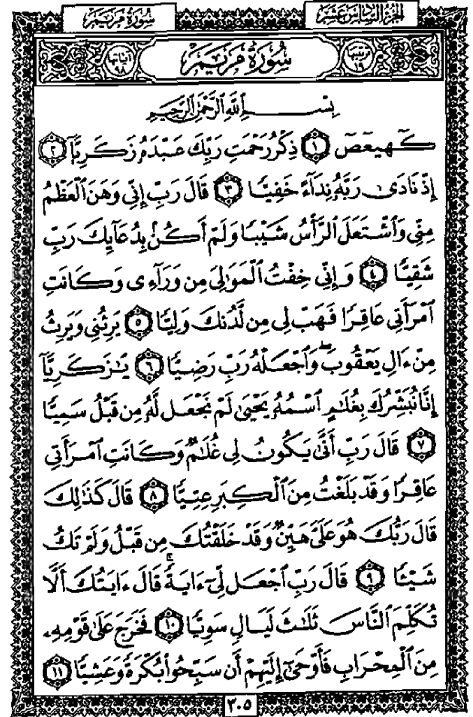 الجزء السادس عشر
سورة مريم
ترتيبها ١٩
سورة مريم
آياتها ٩٨
بسم الله الرحمن الرحيم
كٓهيعٓصٓ ﴿١﴾ ذِكْرُ رَحْمَتِ رَبِّكَ عَبْدَهُۥ زَكَرِيَّآ ﴿٢﴾
إِذْ نَادَىٰ رَبَّهُۥ نِدَآءً خَفِيًّا ﴿٣﴾ قَالَ رَبِّ إِنِّى وَهَنَ ٱلْعَظْمُ
مِنِّى وَٱشْتَعَلَ ٱلرَّأْسُ شَيْبًا وَلَمْ أَكُنۢ بِدُعَآئِكَ رَبِّ
شَقِيًّا ﴿٤﴾ وَإِنِّى خِفْتُ ٱلْمَوَٰلِىَ مِن وَرَآءِى وَكَانَتِ
ٱمْرَأَتِى عَاقِرًا فَهَبْ لِى مِن لَّدُنكَ وَلِيًّا ﴿٥﴾ يَرِثُنِى وَيَرِثُ
مِنْ ءَالِ يَعْقُوبَ ۖ وَٱجْعَلْهُ رَبِّ رَضِيًّا ﴿٦﴾ يَٰزَكَرِيَّآ
إِنَّا نُبَشِّرُكَ بِغُلَٰمٍ ٱسْمُهُۥ يَحْيَىٰ لَمْ نَجْعَل لَّهُۥ مِن قَبْلُ سَمِيًّا
﴿٧﴾ قَالَ رَبِّ أَنَّىٰ يَكُونُ لِى غُلَٰمٌ وَكَانَتِ ٱمْرَأَتِى
عَاقِرًا وَقَدْ بَلَغْتُ مِنَ ٱلْكِبَرِ عِتِيًّا ﴿٨﴾ قَالَ كَذَٰلِكَ
قَالَ رَبُّكَ هُوَ عَلَىَّ هَيِّنٌ وَقَدْ خَلَقْتُكَ مِن قَبْلُ وَلَمْ تَكُ
شَيْـًٔا ﴿٩﴾ قَالَ رَبِّ ٱجْعَل لِّىٓ ءَايَةً ۚ قَالَ ءَايَتُكَ أَلَّا
تُكَلِّمَ ٱلنَّاسَ ثَلَٰثَ لَيَالٍ سَوِيًّا ﴿١٠﴾ فَخَرَجَ عَلَىٰ قَوْمِهِۦ
مِنَ ٱلْمِحْرَابِ فَأَوْحَىٰٓ إِلَيْهِمْ أَن سَبِّحُوا۟ بُكْرَةً وَعَشِيًّا ﴿١١﴾
٣٠٥